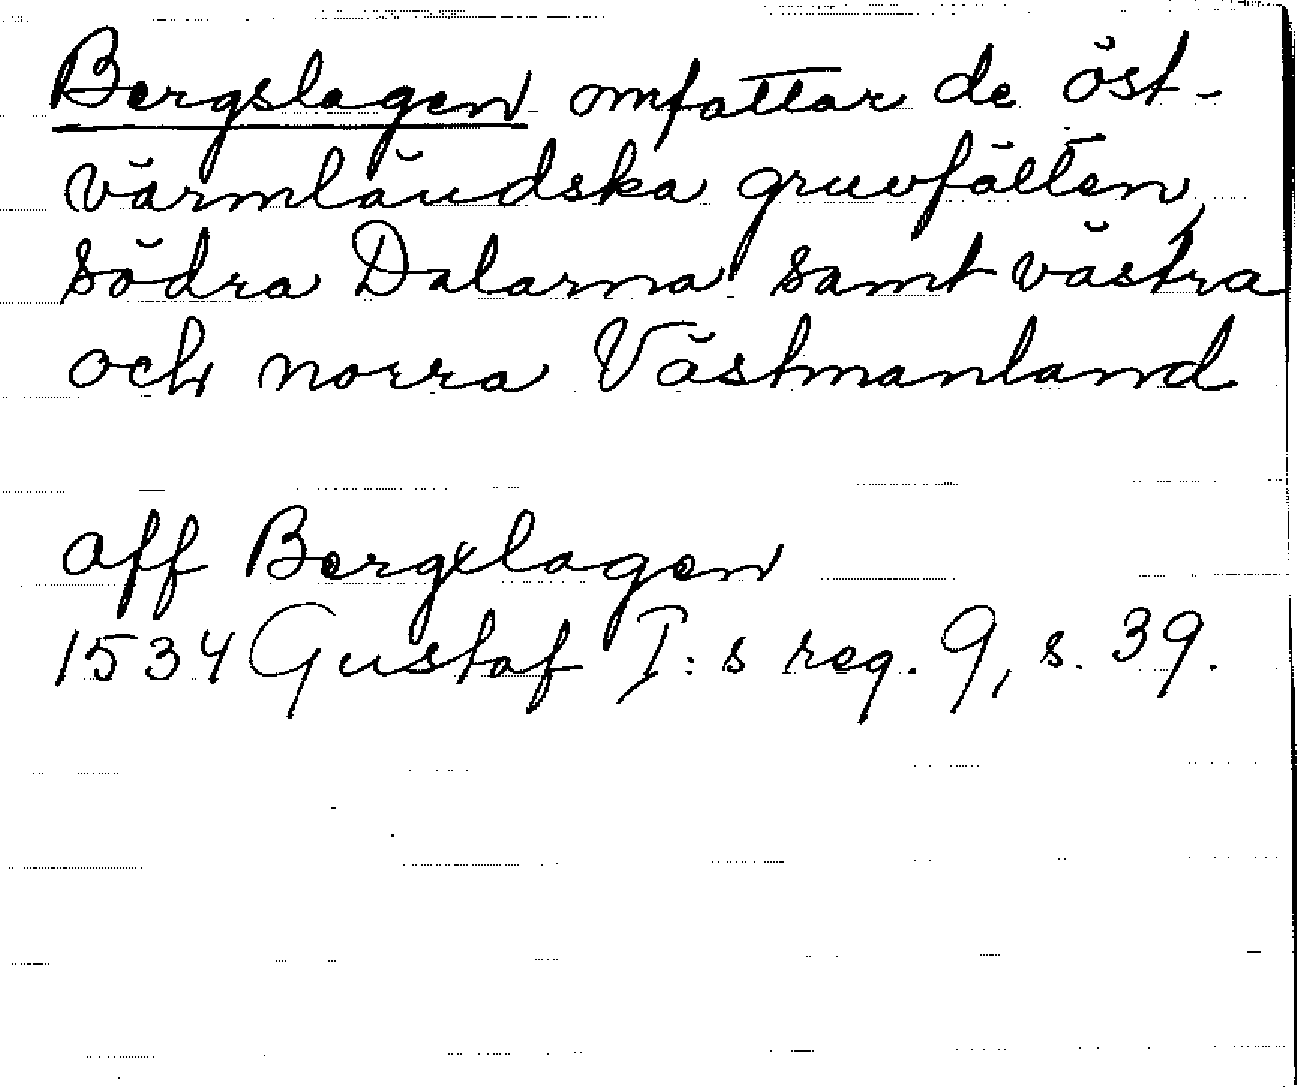 Bergslagen omfattar de öst-
värmländska gruvfälten,
södra Dalarna samt västra
och norra Västmanland
aff Bergxlagen
1534 Gustaf I:s reg. 9, s. 39.